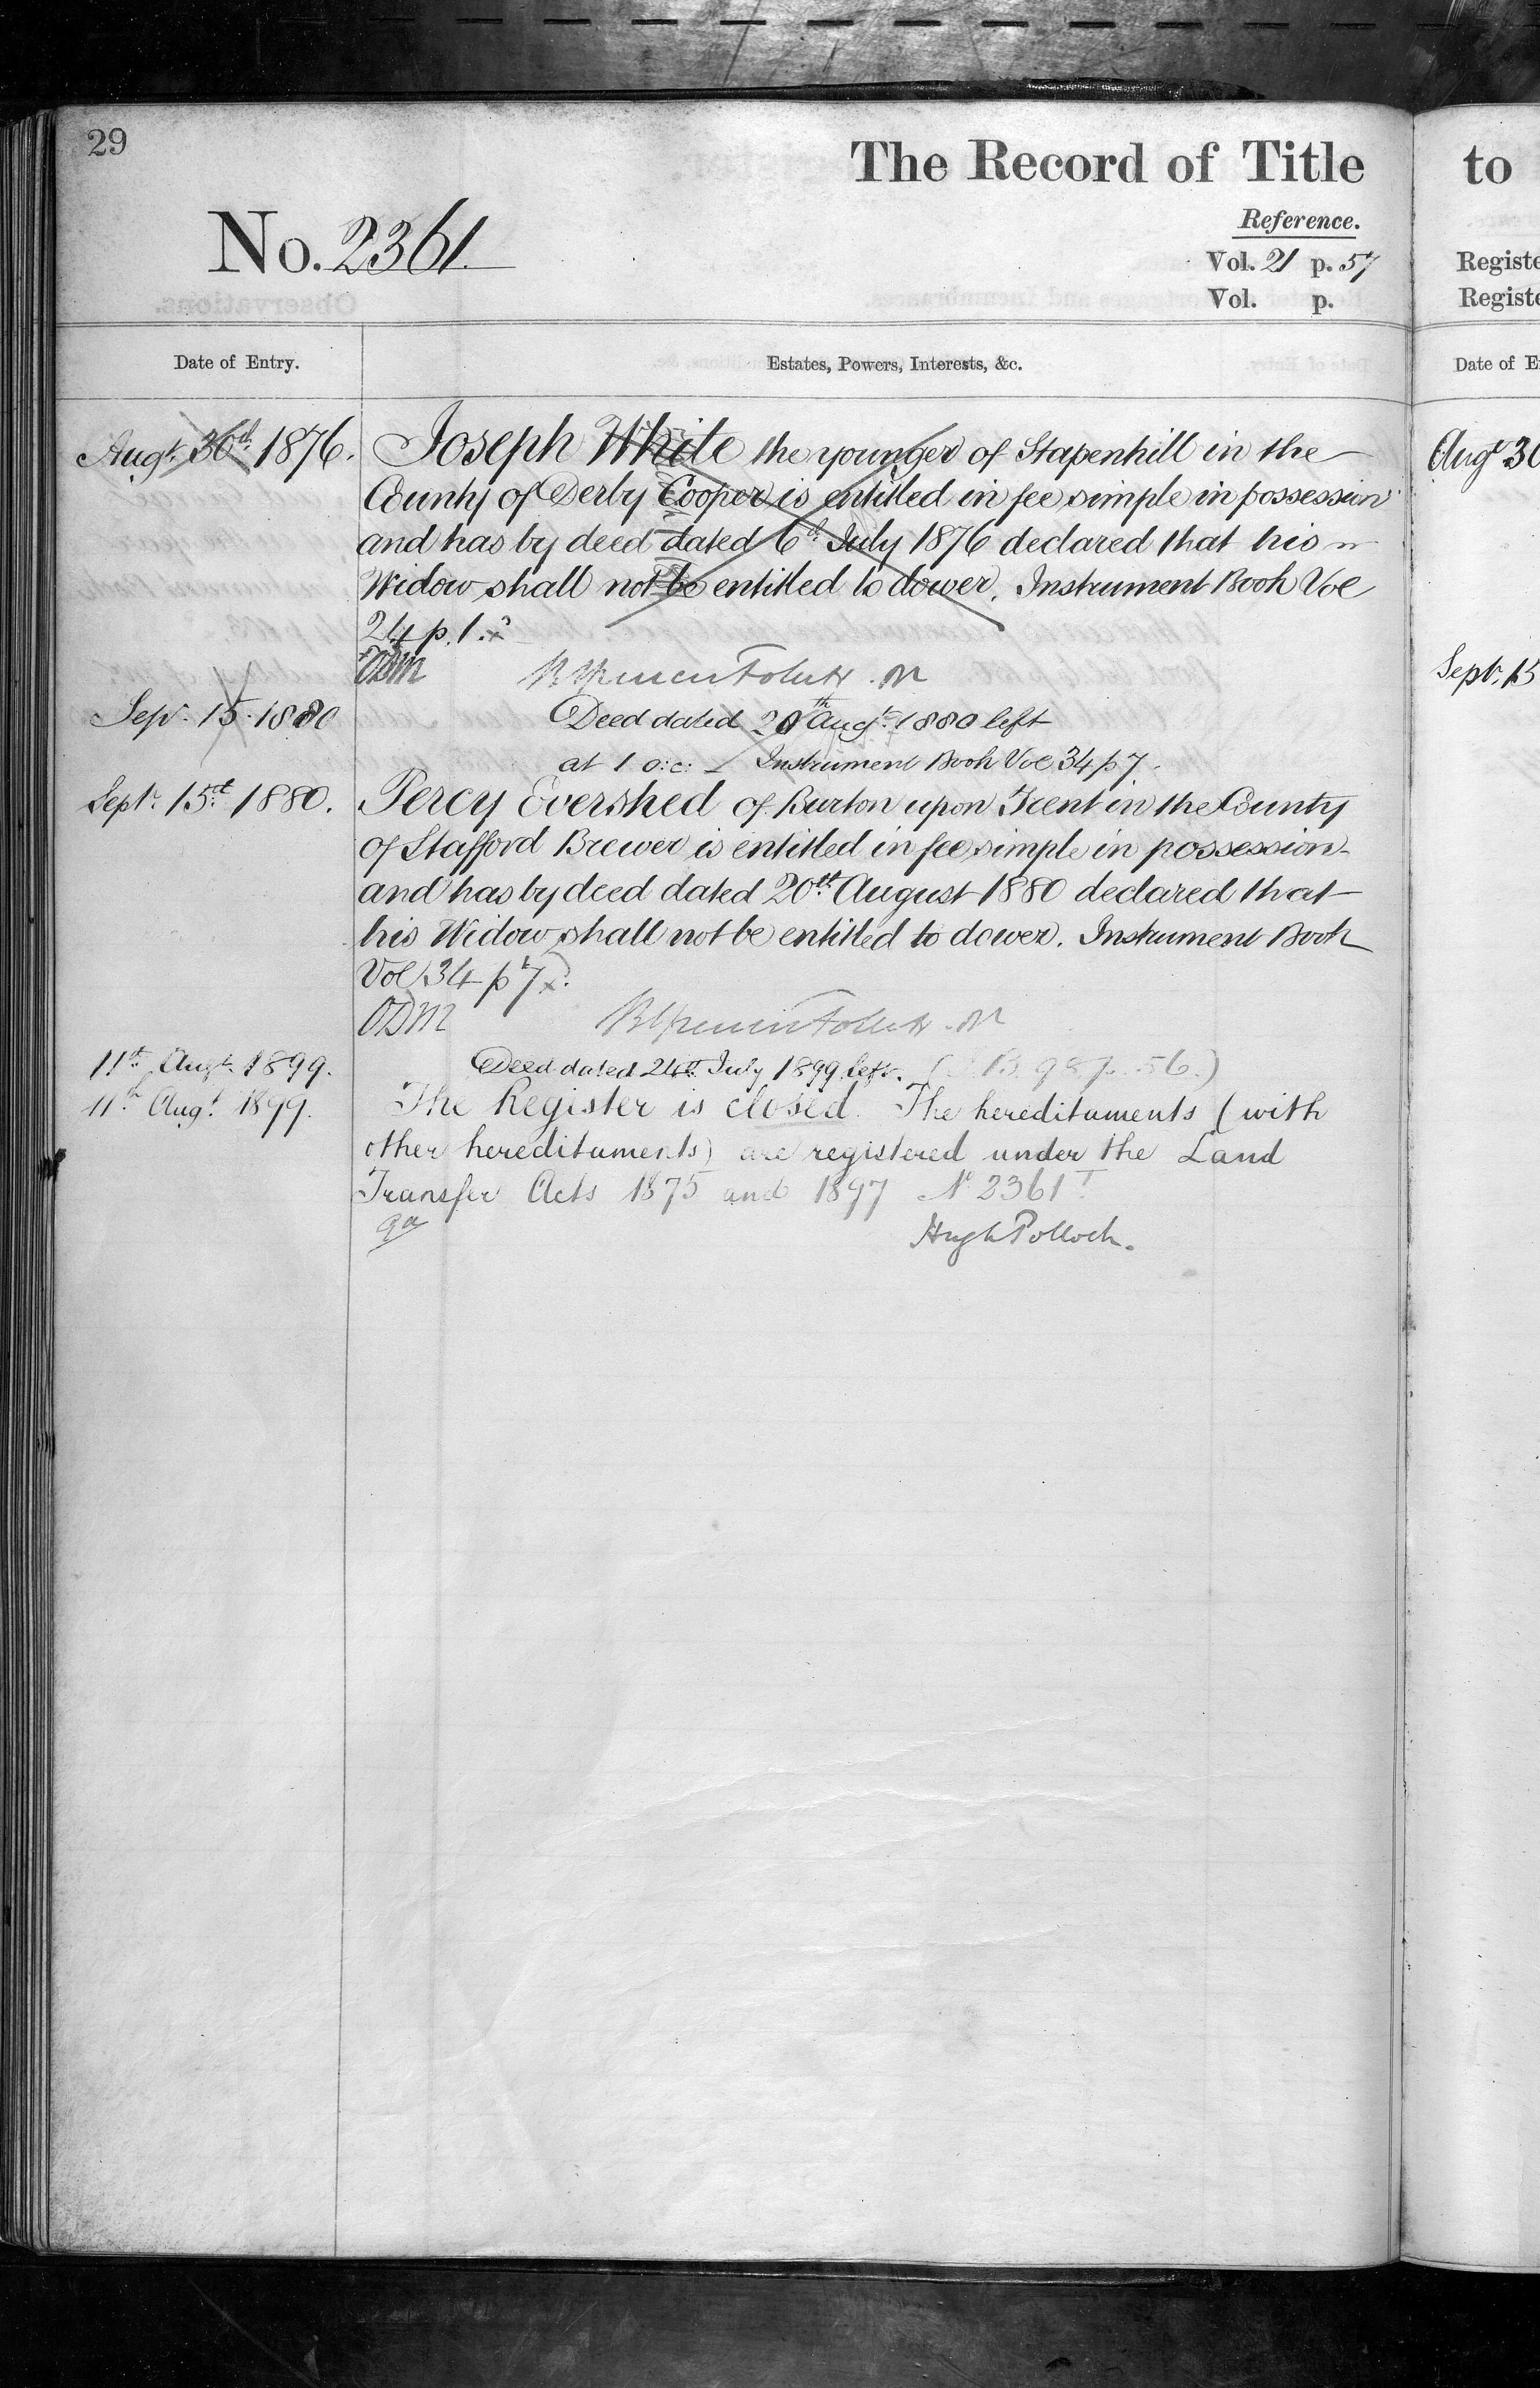 29
The Record of Title
to
No. 2361.
Reference.
Vol. 21 p. 57
Vol. p.
Registe
Registe
Date of Entry.
Estates, Powers, Interests, &c.
Date of E
Augt. 30th 1876.
Joseph White the younger of Stapenhill in the
County of Derby Cooper is entitled in fee simple in possession
and has by deed dated 6th July 1876 declared that his
Widow shall not be entitled to dower. Instrument Book Vol
24 p. 1.
Augt 30
ODM
Sepr. 15. 1880
Deed dated 20th Augt. 1880 left
at 1 o:c: Instrument Book Vol 34 p 7.
Septr. 15
Septr. 15th 1880.
Percy Evershed of Burton upon Trent in the County
of Stafford Brewer is entitled in fee simple in possession
and has by deed dated 20th August 1880 declared that
his Widow shall not be entitled to dower. Instrument Book
Vol 34 p 7.
ODM
11th Augt. 1899.
Deed dated 24th July 1899 left. ( B 98 p. 56.)
11th Augt. 1899.
The Register is closed. The hereditaments (with
other hereditaments) are registered under the Land
Transfer Acts 1875 and 1897 No 2361 T
Hugh Pollock.